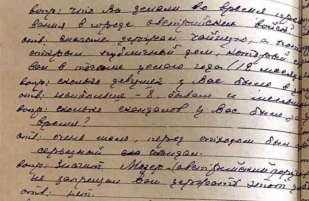 вопр: Что Вы делали во время
вания в городе австрийских войск
отв: сначала держали чайную, а потом
открыли публичный дом, который
вал в течении целого года (12 месяц
вопр: сколько девушек у Вас было в
отв: наиболее - 8, бывало и меньше
вопр: сколько скандалов у Вас было
время?
отв: очень мало, перед отходом был
серьезный скандал.
вопр: Значит, австрийский
не запрещал Вам держать этот
отв: нет.